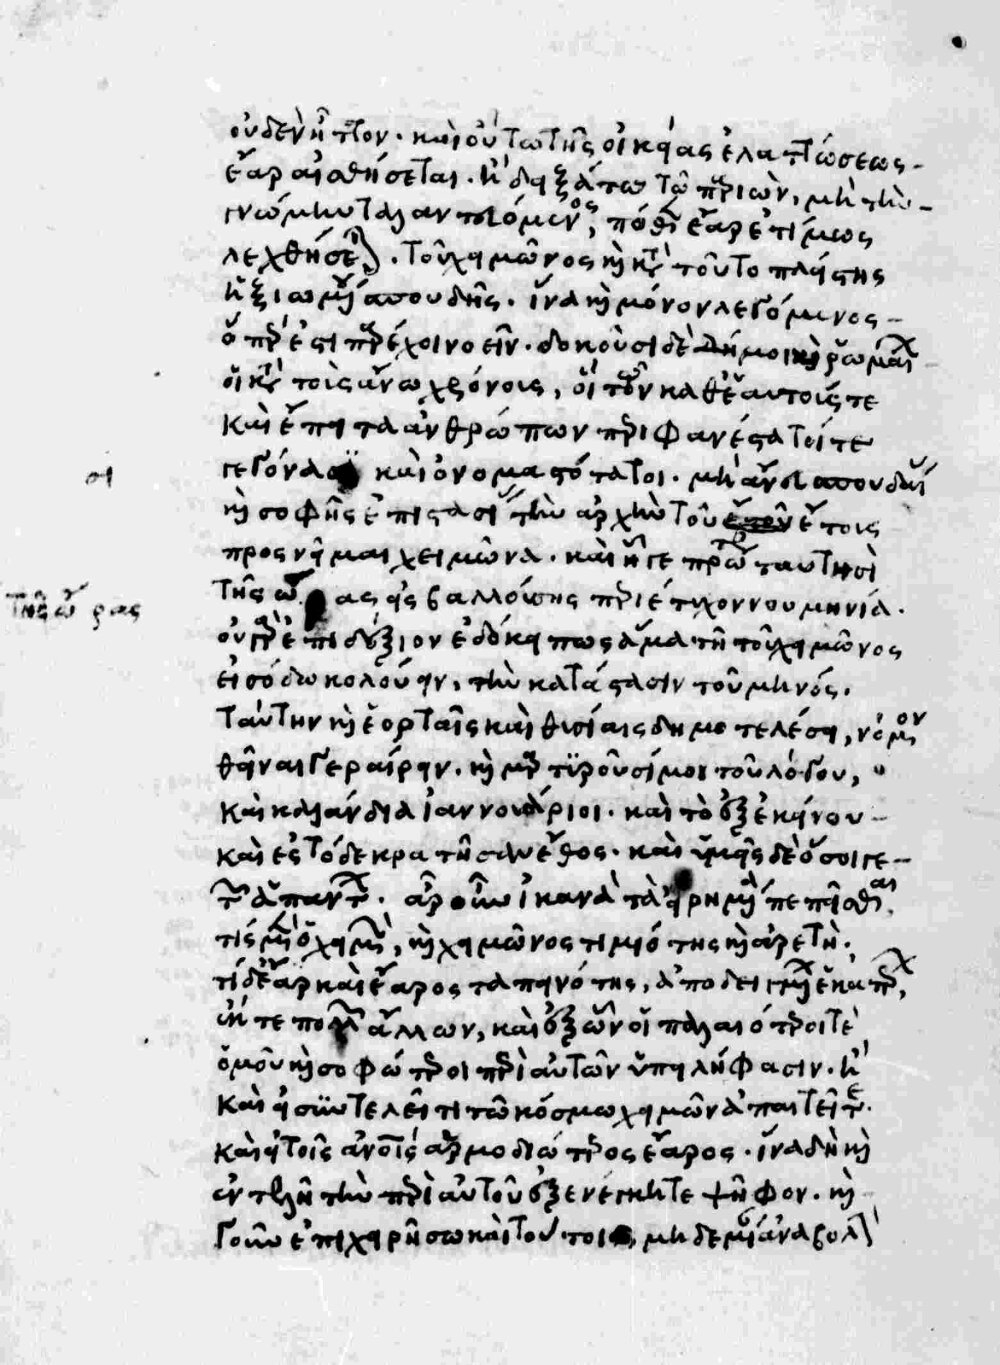 οὐδὲν ἧττον. καὶ οὕτω τῆς οἰκείας ἐλαττώσεως
ἔαρ αἰσθήσεται. ἢ δειξάτω τῶν περιὼν, μὴ τὴν
γνώμην ταλαντευόμενος, πόθεν ἔαρ ἐντίμως
λεχθήσεται. τοῦ χειμῶνος καὶ κατὰ τοῦτο πλείστης
ἠξιωμένου σπουδῆς. ἵνα καὶ μόνον λεγόμενος
δοκοῦσι δέ μοι καὶ ῥωμαῖοι
οἱ κατὰ τοὺς ἄνω χρόνους, οἱ τῶν καθ' ἑαυτούς τε
καὶ ἔπειτα ἀνθρώπων περιφανέστατοί τε
γεγόνασι καὶ ὀνομαστότατοι. μὴ ἄνευ σπουδῆς
οι
καὶ σοφῆς ἐπιστασίας τὴν ἀρχὴν τοῦ ἔτους
προσνεῖμαι χειμῶνα. καὶ ἥ γε πρώτη ταύτησὶ
τῆς ὥρας εἰσβαλλούσης περιέτυχον νουμηνία.
τῆς ὥρας
οὐ γὰρ ἐπιδέξιον ἐδόκει πως ἅμα τῇ τοῦ χειμῶνος
εἰσόδω κολούειν, τὴν κατάστασιν τοῦ μηνός.
ταύτην καὶ ἑορταῖς καὶ θυσίαις δημοτελέσι, νόμον
θεῖναι γεραίρειν. καὶ μαρτυροῦσί μοι τοῦ λόγου,
καὶ καλάνδαι ἰαννουάριοι. καὶ τὸ ἐξ ἐκείνου
καὶ ἐς τόδε κρατῆσαν ἔθος. καὶ ὑμεῖς δὲ ὅσοι γε
ἅπαντες. ἆρ' οὖν ἱκανὰ τὰ εἰρημένα πεπεῖσθαι,
τίς μὲν ὁ χειμὼν, καὶ χειμῶνος τιμιότης καὶ ἀρετὴ.
τί δὲ ἔαρ καὶ ἔαρος ταπεινότης, ἀποδεδειγμένων ἑκατέρων,
ἔκ τε πολλῶν ἄλλων, καὶ ἐξ ὧν οἱ παλαιότεροί τε
ὁμοῦ καὶ σοφώτεροι περὶ αὐτῶν ὑπειλήφασιν. ἢ
καὶ εἰ συντελεῖ τι τῶ κόσμω χειμὼν ἀπαιτεῖτε.
καὶ εἰ τοῖς ἀνθρώποις ἁρμοδιώτερος ἔαρος. ἵνα δὴ καὶ
ἐντελῆ τὴν περὶ αὐτοῦ ἐξενέγκητε ψῆφον. καὶ
γοῦν ἐπιχειρήσω καὶ τούτοις, μηδεμίαν ἀναβολὴν